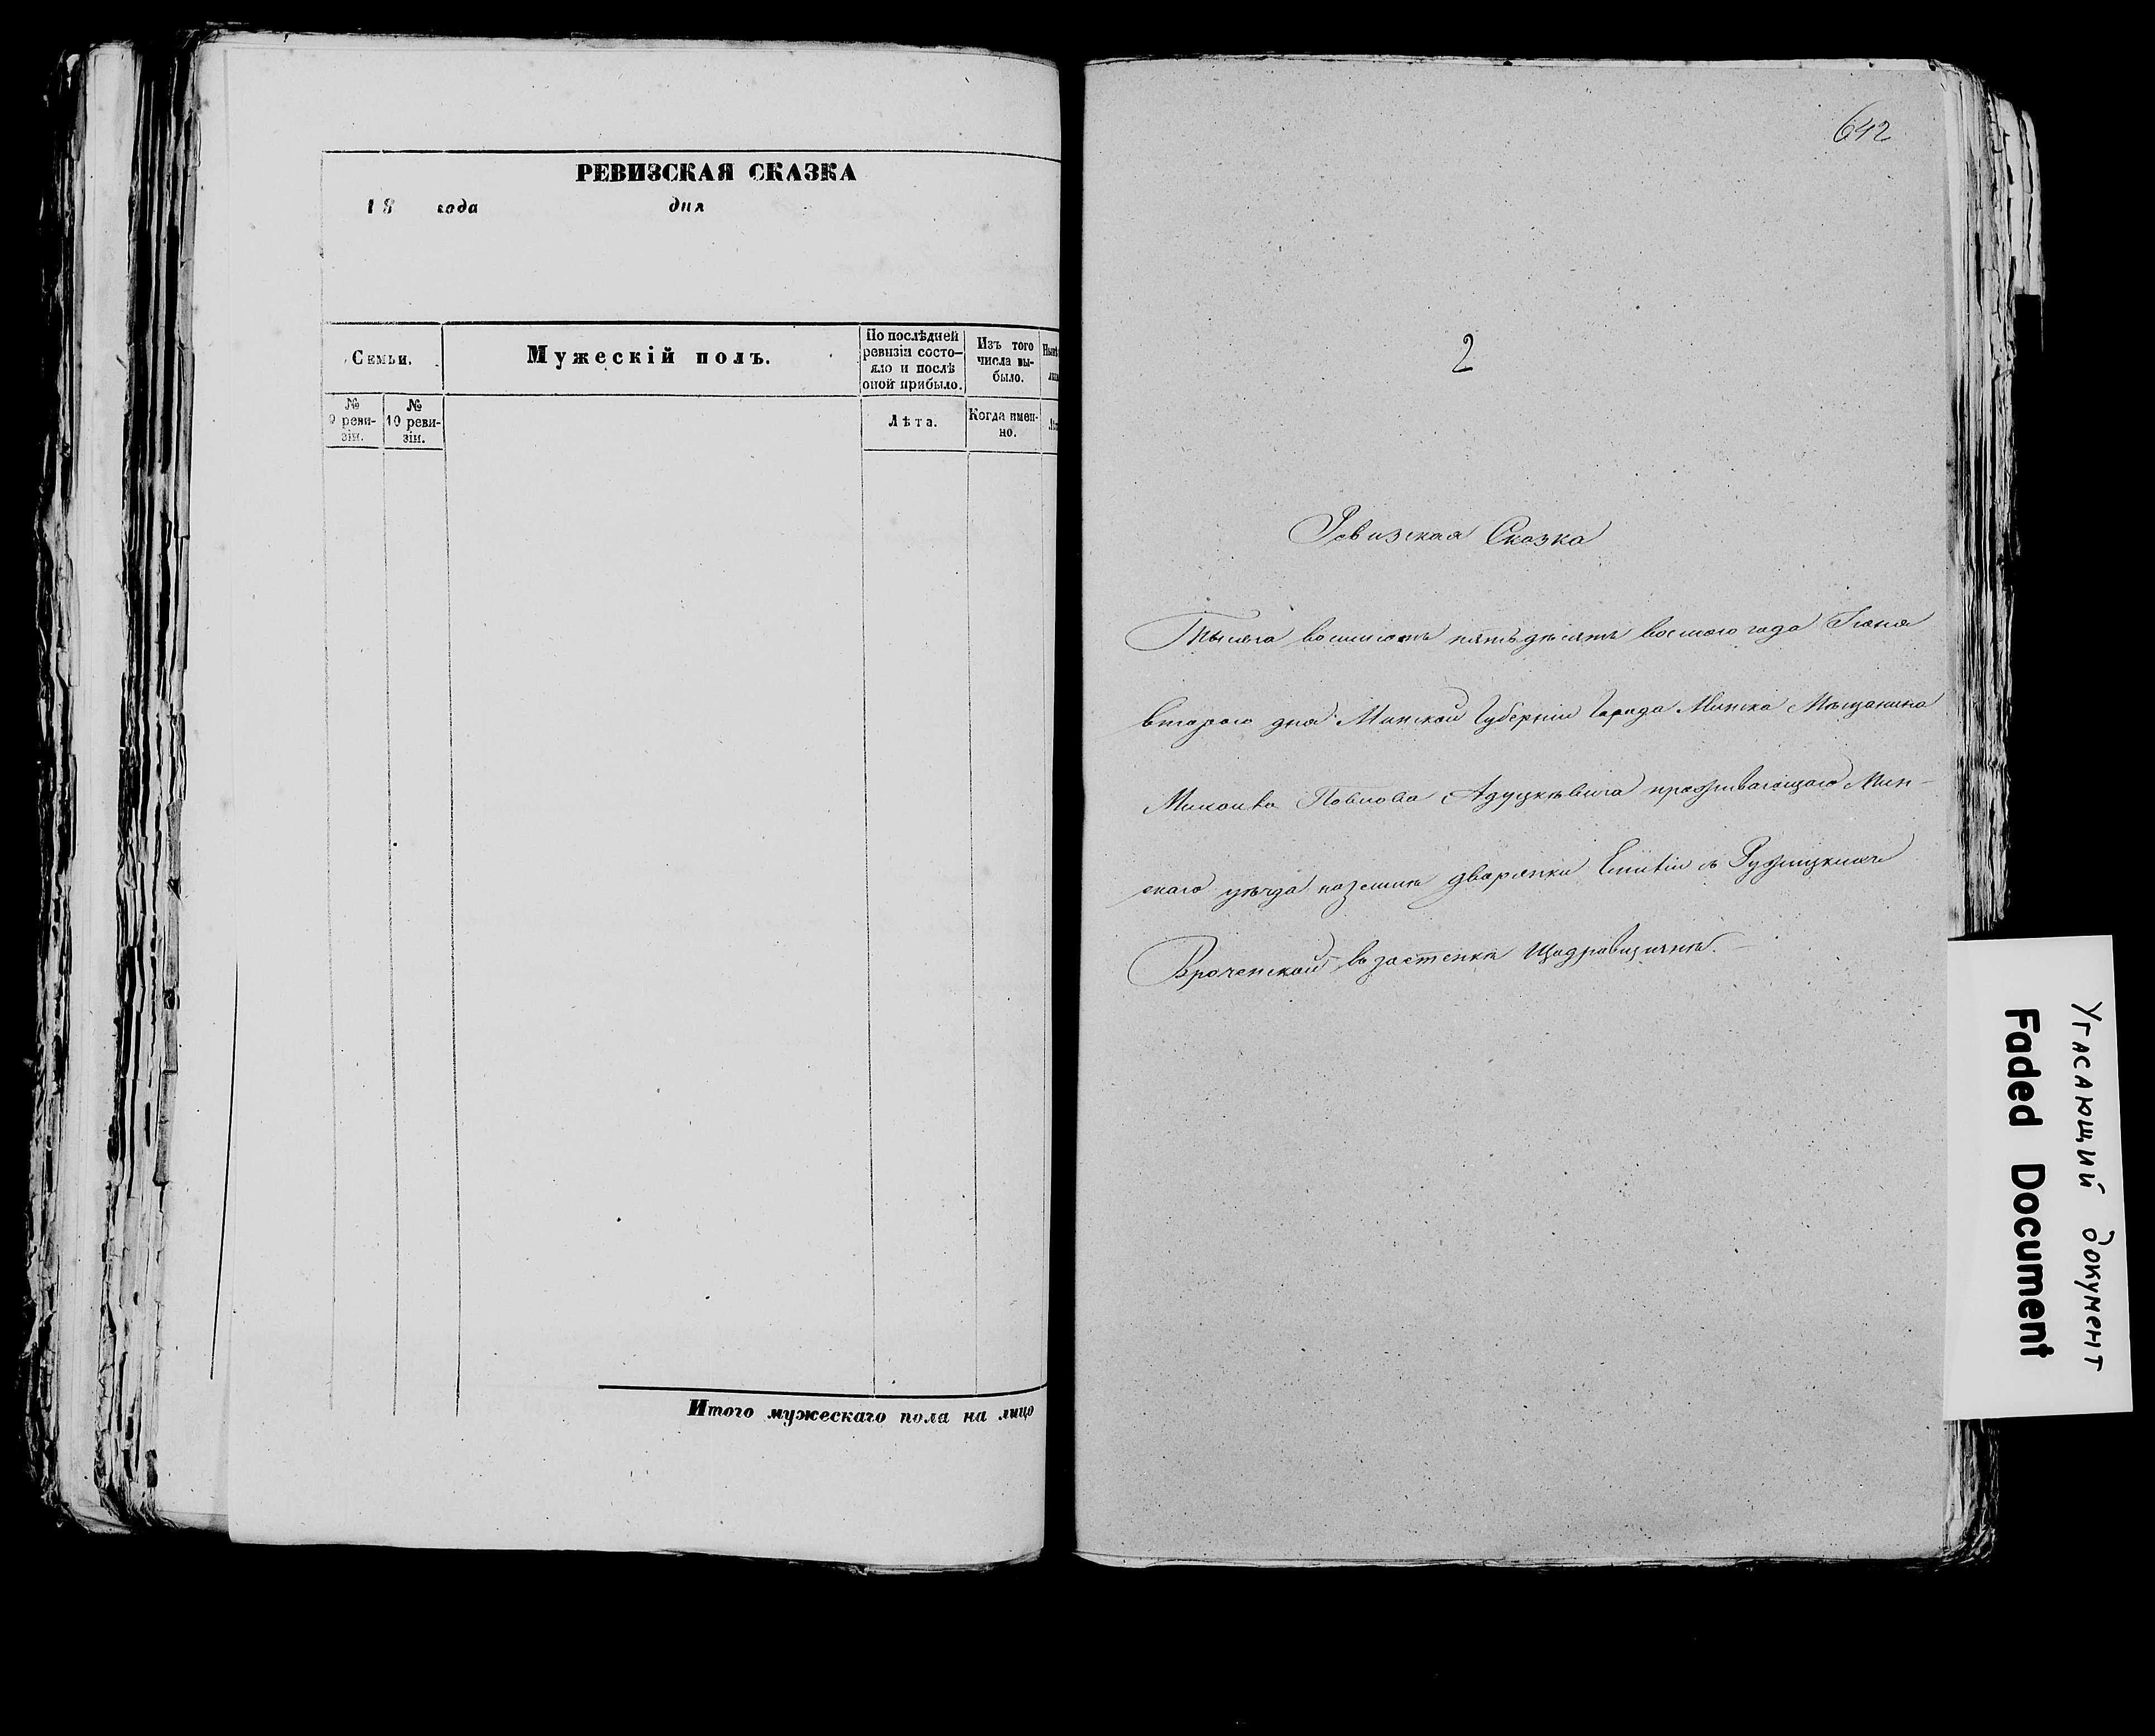 РЕВИЗСКАЯ СКАЗКА
18 года дня
Семьи.
Мужескій полъ.
По послѣдней
ревизіи состо-
яло и послѣ
оной прибыло.
Изъ того
числа вы-
было.
№
9 реви-
зіи.
№
10 реви-
зіи.
Лѣта.
Когда имен-
но.
Итого мужескаго пола на лицо
642
2
Ревизская Сказка
Тысяча восемсотъ пятьдесятъ восмого года Іюня
второго дня Минской Губерніи Города Минска Мѣщанина
Павлова Адуцкевича проживающаго Мин-
скаго уѣзда на земли дворянки съ
въ застенкѣ
Угасающий документ
Faded Document